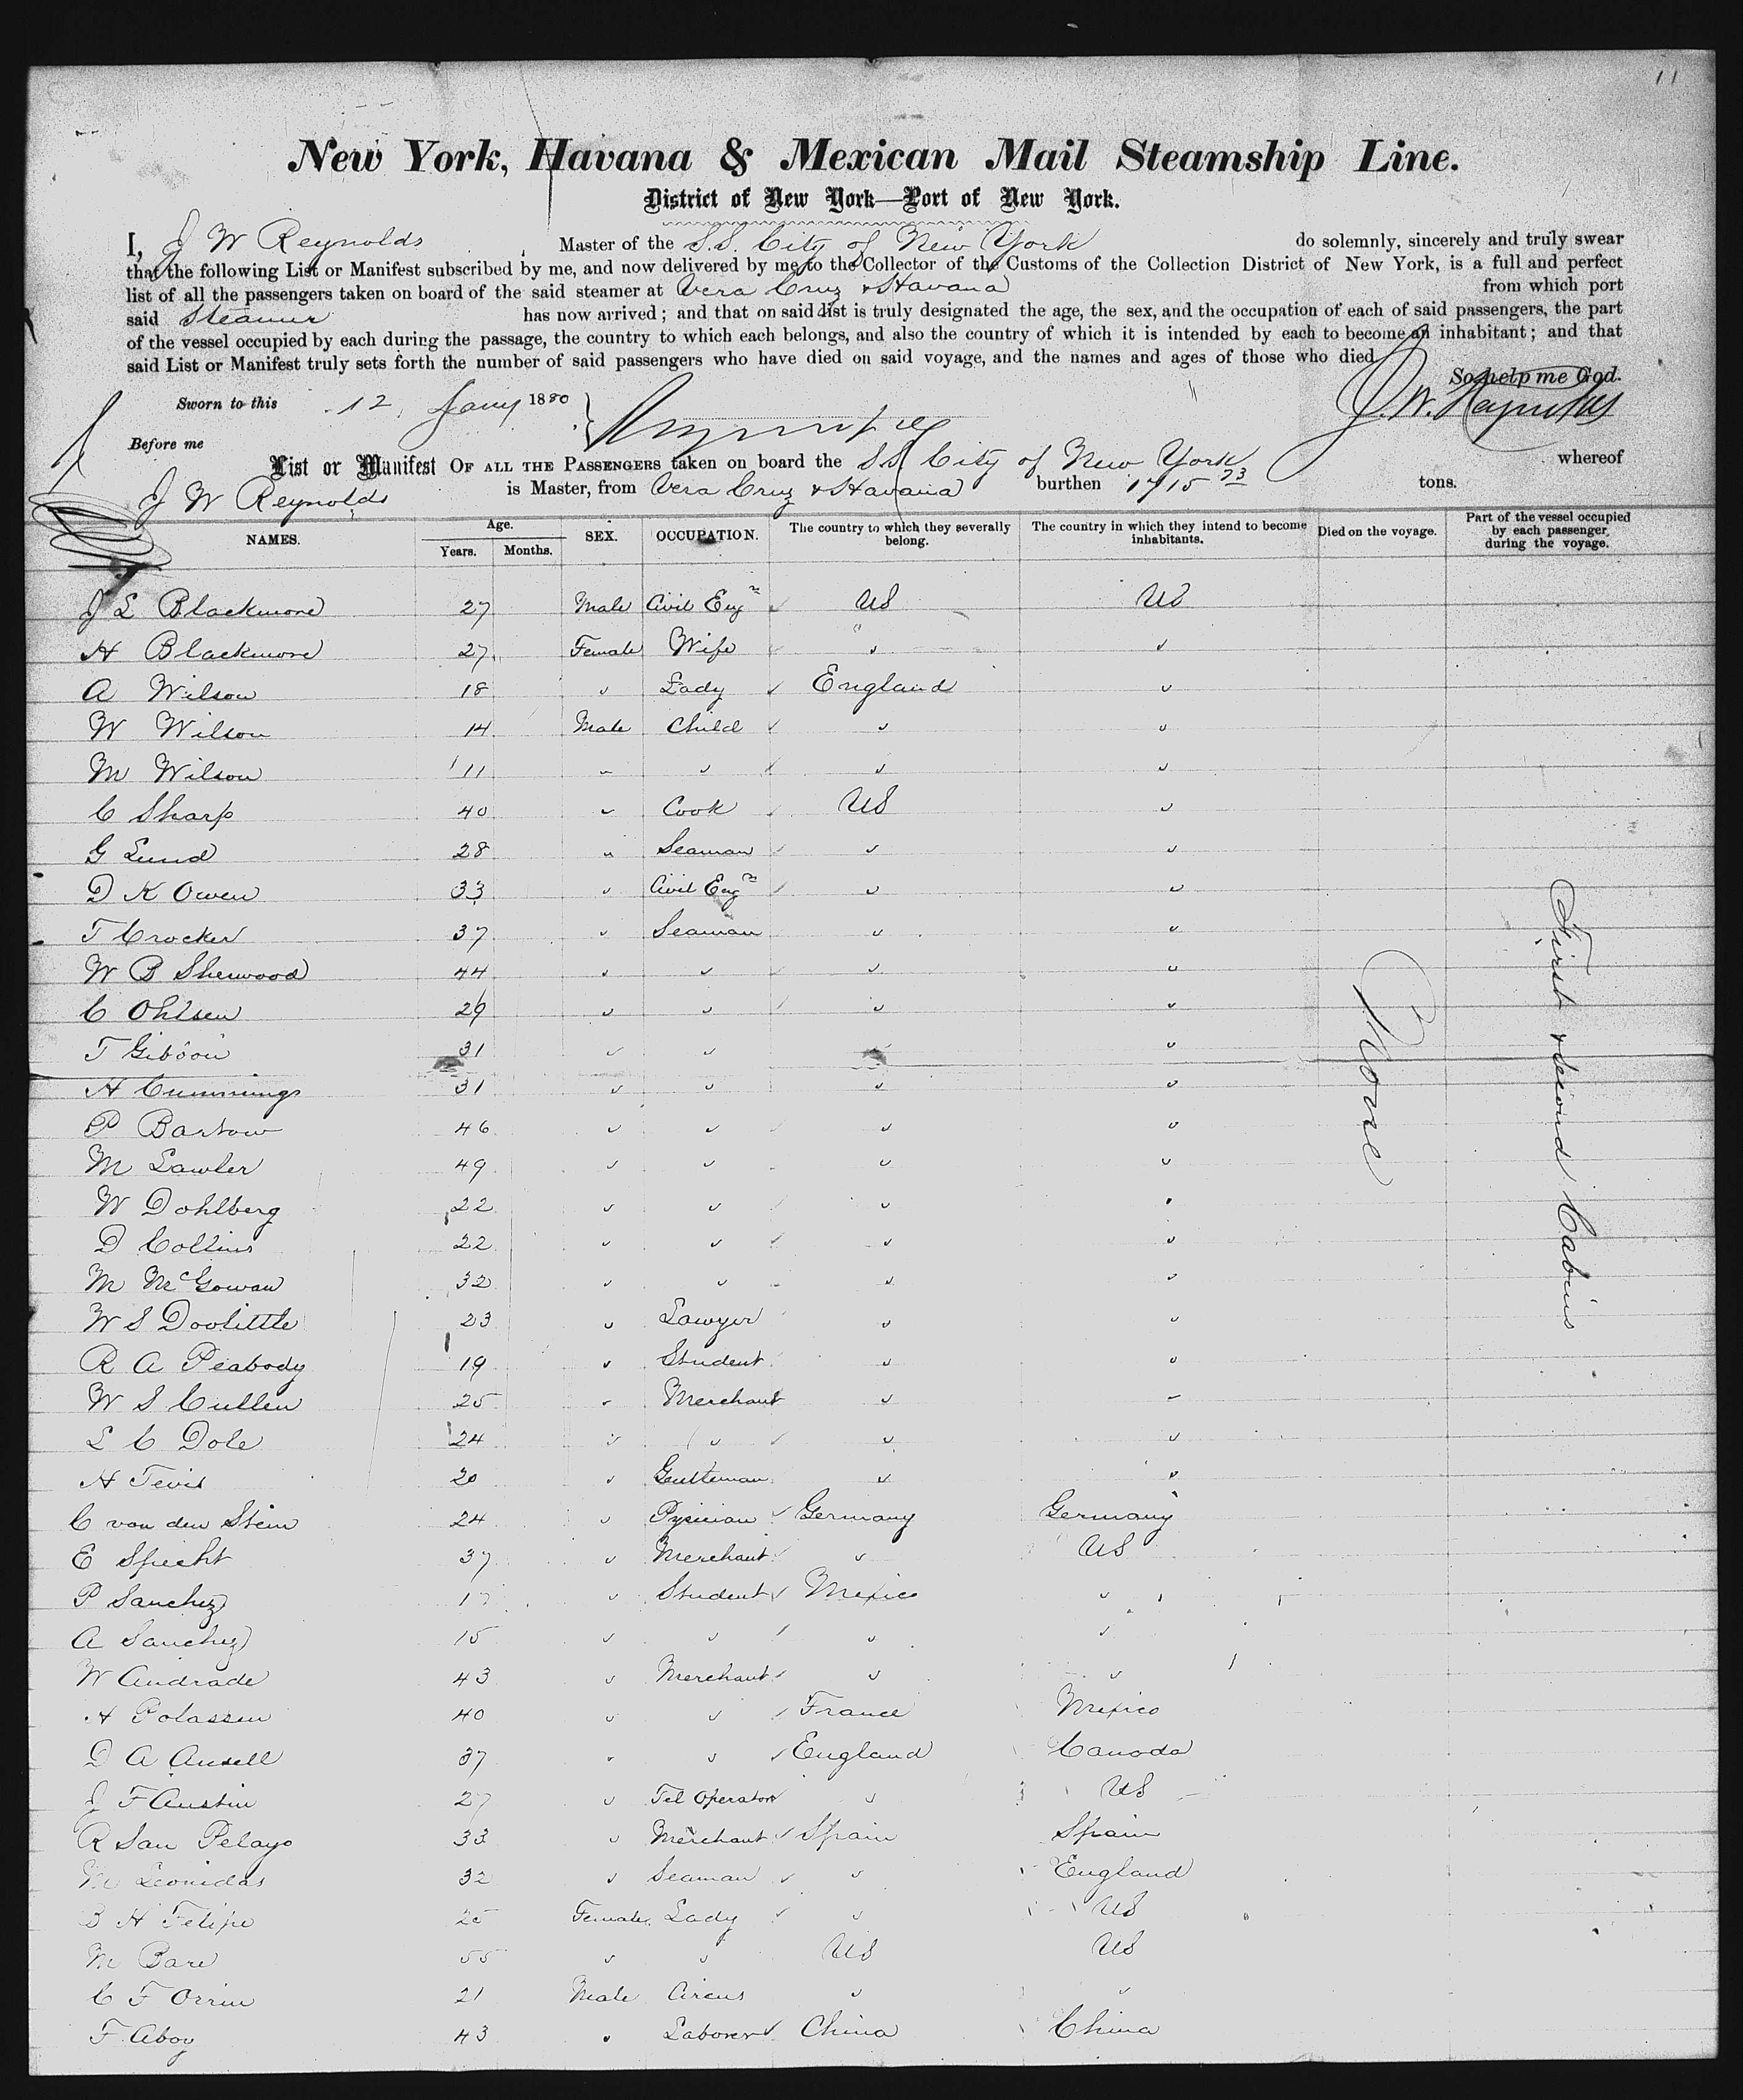 11
New York, Havana & Mexican Mail Steamship Line.
District of New York—Port of New York.
I, J W Reynolds, Master of the S.S. City of New York do solemnly, sincerely and truly swear
that the following List or Manifest subscribed by me, and now delivered by me to the Collector of the Customs of the Collection District of New York, is a full and perfect
list of all the passengers taken on board of the said steamer at Vera Cruz & Havana from which port
said Steamer has now arrived; and that on said list is truly designated the age, the sex, and the occupation of each of said passengers, the part
of the vessel occupied by each during the passage, the country to which each belongs, and also the country of which it is intended by each to become an inhabitant; and that
said List or Manifest truly sets forth the number of said passengers who have died on said voyage, and the names and ages of those who died.
So help me God.
Sworn to this 12 Jany 1880
J. W. Reynolds
Before me
List or Manifest OF ALL THE PASSENGERS taken on board the S.S. City of New York whereof
J W Reynolds is Master, from Vera Cruz & Havana burthen 1715 73 tons.
NAMES. Age. Years. Months. SEX. OCCUPATION. The country to which they severally belong. The country in which they intend to become inhabitants. Died on the voyage. Part of the vessel occupied by each passenger during the voyage.
J L Blackmore 27 Male Civil Engr US US
H Blackmore 27 Female Wife " "
A Wilson 18 " Lady England "
W Wilson 14 Male Child " "
M Wilson 11 " " " "
C Sharp 40 " Cook US "
G Lund 28 " Seaman " "
D K Owen 33 " Civil Engr " "
T Crocker 37 " Seaman " "
W B Sherwood 44 " " " "
C Ohlsen 29 " " " "
T Gibson 31 " " " "
H Cummings 31 " " " "
P Barlow 46 " " " "
M Lawler 49 " " " "
W Dohlberg 22 " " " "
D Collins 22 " " " "
M McGowan 32 " " " "
W S Doolittle 23 " Lawyer " "
R A Peabody 19 " Student " "
W S Cullen 25 " Merchant " "
L C Dole 24 " " " "
H Tevis 20 " Gentleman " "
C von den Stein 24 " Pysician Germany Germany
E Specht 37 " Merchant " US
P Sanchez " Student Mexico "
A Sanchez 15 " " " "
W Andrade 43 " Merchant " "
H Polassen 40 " " France Mexico
D A Ansell 37 " " England Canada
J F Austin 27 " Tel Operator " US
R San Pelayo 33 " Merchant Spain Spain
M Leonidas 32 " Seaman " England
B H Felipe 25 Female Lady " US
M Bare 55 " " US US
C F Orrin 21 Male Circus " "
F Aboy 43 " Laborer China China
None
First & Second Cabins